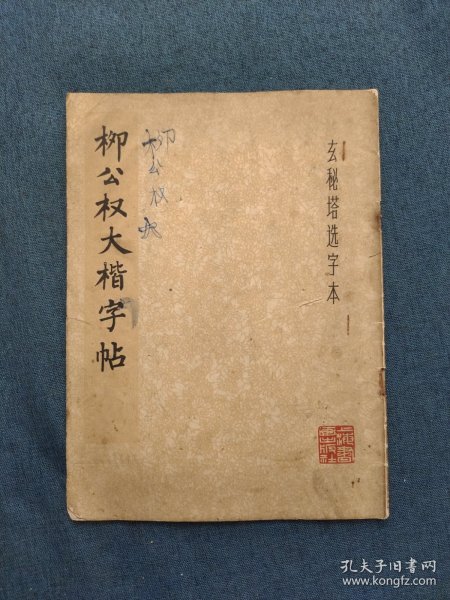 柳公权大楷字帖
柳公权大
玄秘塔选字本
上海书画出版社
孔夫子旧书网
www.kongfz.com